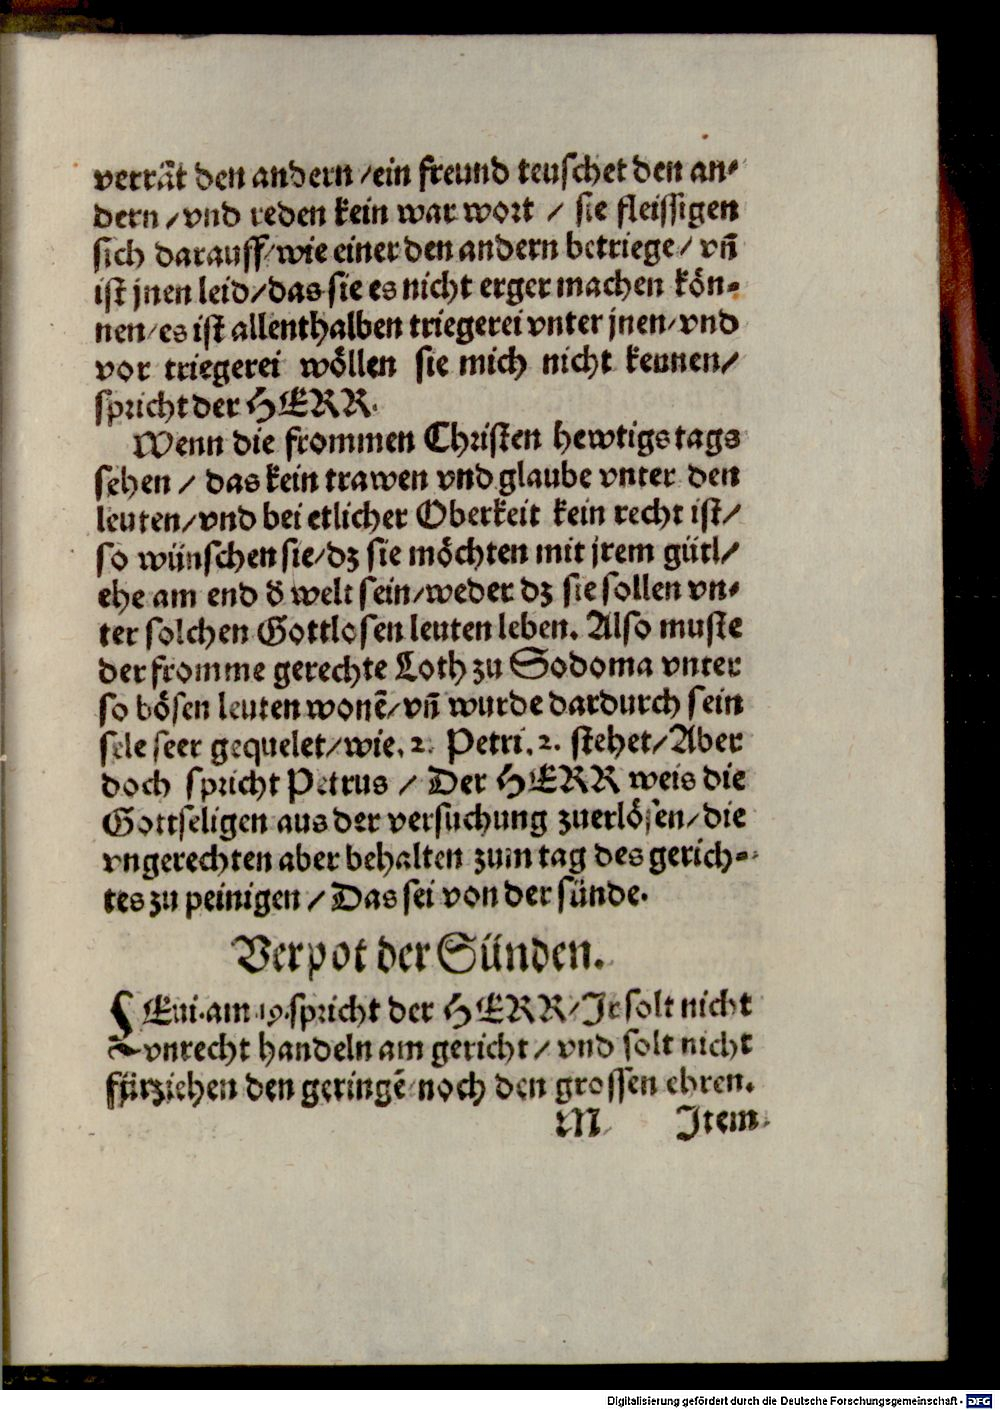 verrät den andern / ein freund teuschet den an-
dern / vnd reden kein war wort / sie fleissigen
sich darauff / wie einer den andern betriege / vñ
ist jnen leid / das sie es nicht erger machen kön-
nen / es ist allenthalben triegerei vnter jnen / vnd
vor triegerei wöllen sie mich nicht kennen /
spricht der HERR.
Wenn die frommen Christen hewtigs tags
sehen / das kein trawen vnd glaube vnter den
leuten / vnd bei etlicher Oberkeit kein recht ist /
so wünschen sie / dz sie möchten mit jrem gütl /
ehe am end d̕ welt sein / weder dz sie sollen vn-
ter solchen Gottlosen leuten leben. Also muste
der fromme gerechte Loth zu Sodoma vnter
so bösen leuten wonē / vñ wurde dardurch sein
sele seer gequelet / wie. 2. Petri. 2. stehet / Aber
doch spricht Petrus / Der HERR weis die
Gottseligen aus der versuchung zuerlösen / die
vngerechten aber behalten zum tag des gerich-
tes zu peinigen / Das sei von der sünde.
Verpot der Sünden.
LEui. am 19. spricht der HERR / Jr solt nicht
vnrecht handeln am gericht / vnd solt nicht
fürziehen den geringē noch den grossen ehren.
M Item
Digitalisierung gefördert durch die Deutsche Forschungsgemeinschaft - DFG